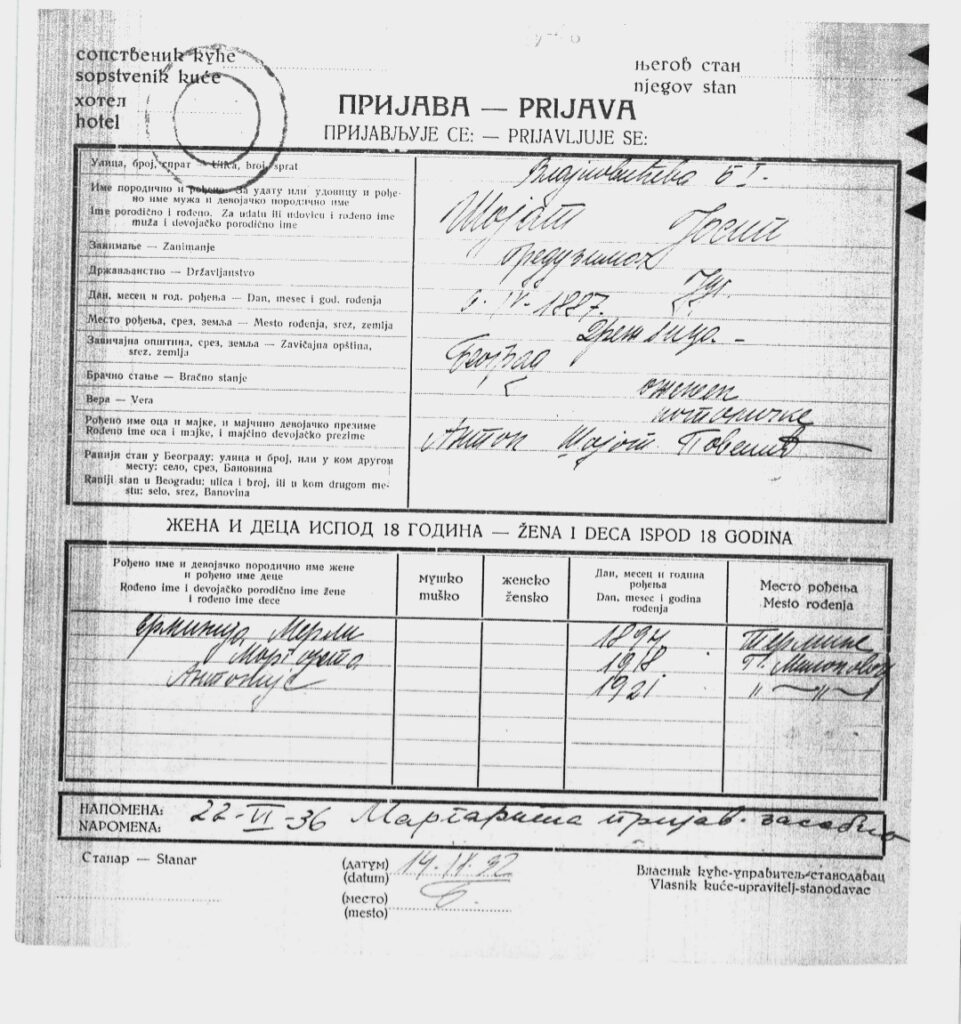 сопственик куће
sopstvenik kuće
његов стан
njegov stan
хотел
hotel
ПРИЈАВА — PRIJAVA
ПРИЈАВЉУЈЕ СЕ: — PRIJAVLJUJE SE:
Улица, број, спрат — Ulica, broj, sprat
Име породично и рођено. За удату или удовицу и рође-
но име мужа и девојачко породично име
Ime porodično i rođeno. Za udatu ili udovicu i rođeno ime
muža i devojačko porodično ime
Шојат Јосип
Занимање — Zanimanje
предузимач
Држављанство — Državljanstvo
Југ.
Дан, месец и год. рођења — Dan, mesec i god. rođenja
IV-1887.
Место рођења, срез, земља — Mesto rođenja, srez, zemlja
Завичајна општина, срез, земља — Zavičajna opština,
srez, zemlja
Београд
Брачно стање — Bračno stanje
ожењен
Вера — Vera
Рођено име оца и мајке, и мајчино девојачко презиме
Rođeno ime oca i majke, i majčino devojačko prezime
Антон Шојат
Ранији стан у Београду: улица и број, или у ком другом
месту: село, срез, Бановина
Raniji stan u Beogradu: ulica i broj, ili u kom drugom me-
stu: selo, srez, Banovina
ЖЕНА И ДЕЦА ИСПОД 18 ГОДИНА — ŽENA I DECA ISPOD 18 GODINA
Рођено име и девојачко породично име жене
и рођено име деце
Rođeno ime i devojačko porodično ime žene
i rođeno ime dece
мушко
muško
женско
žensko
Дан, месец и година
рођења
Dan, mesec i godina
rođenja
Место рођења
Mesto rođenja
Ерминија Мерли 1897
Маргарета 1918
Антоније 1921 " — " —
НАПОМЕНА:
NAPOMENA:
22-VI-36 Маргарита пријав. засебно
Станар — Stanar
(датум)
(datum)
14.IX.32
(место)
(mesto)
Б.
Власник куће-управитељ-станодавац
Vlasnik kuće-upravitelj-stanodavac